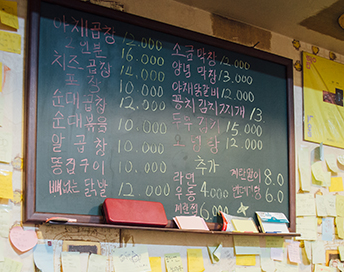 야채곱창 12.000
2인분 16.000
치즈곱창 14.000
포장 10.000
순대곱창 12.000
순대볶음 10.000
알곱창 10.000
똥집구이 10.000
뼈없는닭발 12.000
소금막창 12.000
양념막창 13.000
야채닭갈비 12.000
꽁치김치찌개 13
두부김치 15.000
오뎅탕 12.000
추가
라면
우동 4.000
6.000
계란말이 8.0
6.0